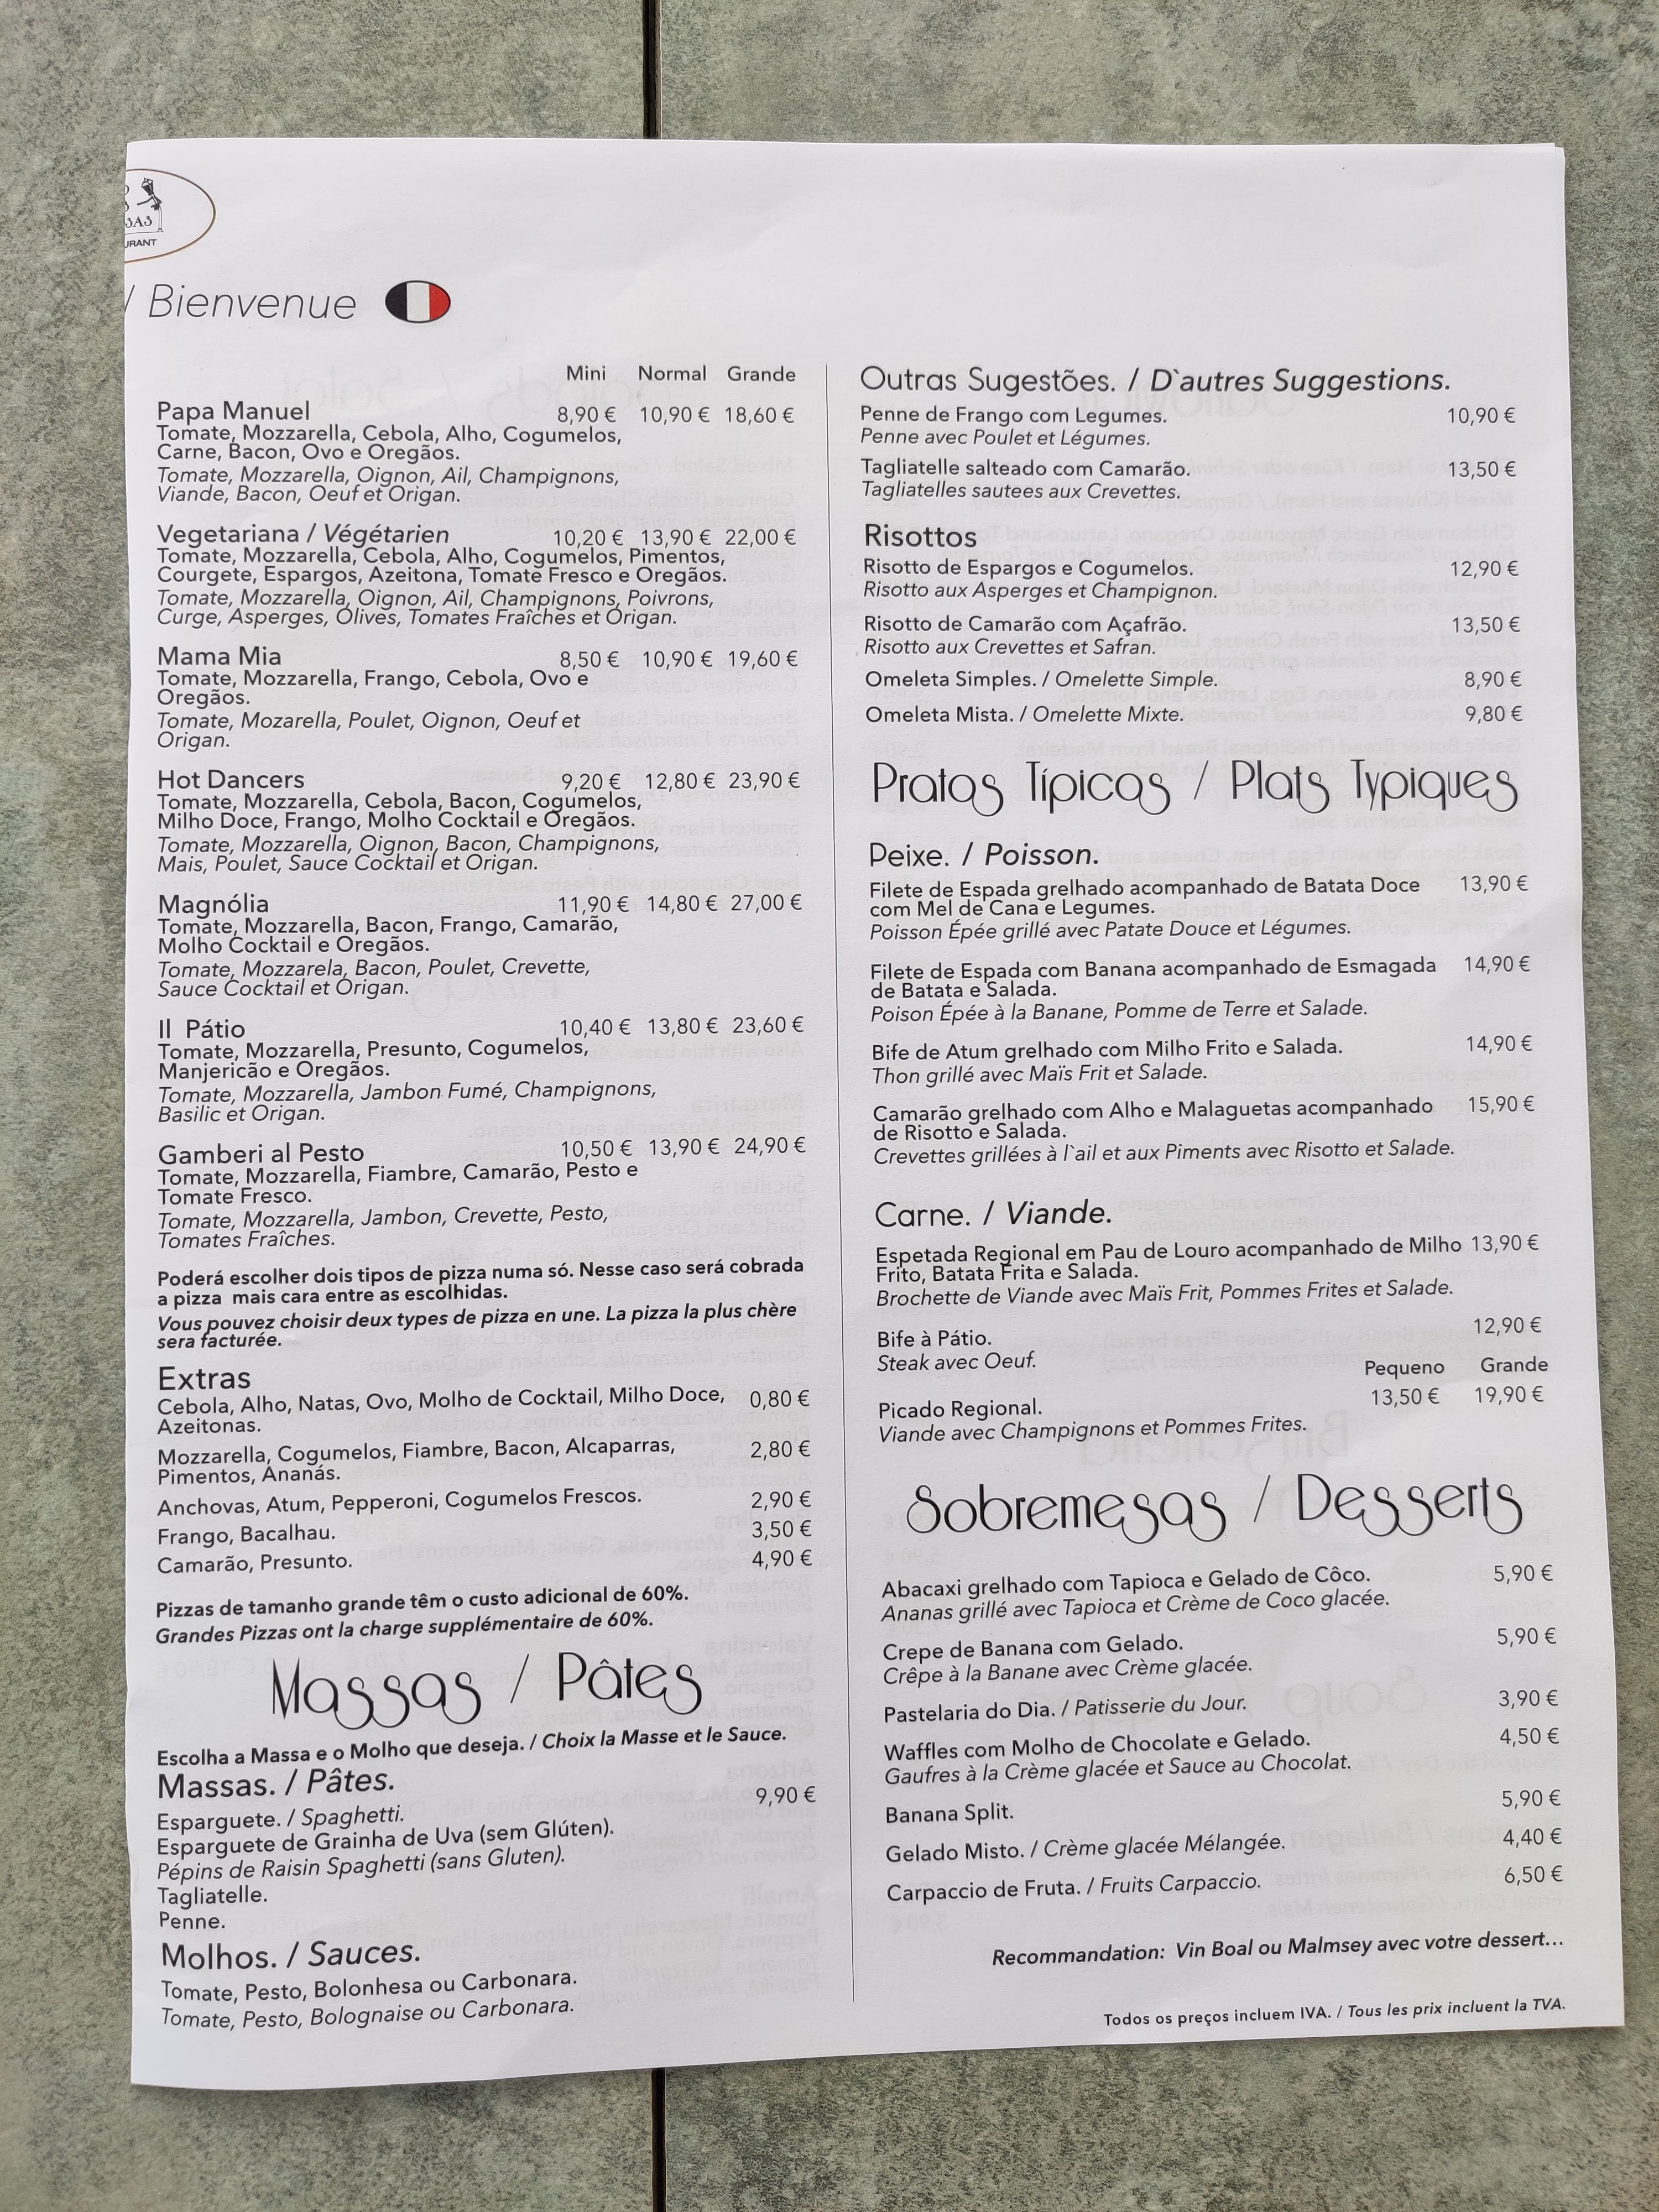 / Bienvenue
Mini Normal Grande
Papa Manuel 8,90 € 10,90 € 18,60 €
Tomate, Mozzarella, Cebola, Alho, Cogumelos,
Carne, Bacon, Ovo e Oregãos.
Tomate, Mozzarella, Oignon, Ail, Champignons,
Viande, Bacon, Oeuf et Origan.
Vegetariana / Végétarien 10,20 € 13,90 € 22,00 €
Tomate, Mozzarella, Cebola, Alho, Cogumelos, Pimentos,
Courgete, Espargos, Azeitona, Tomate Fresco e Oregãos.
Tomate, Mozzarella, Oignon, Ail, Champignons, Poivrons,
Curge, Asperges, Olives, Tomates Fraîches et Origan.
Mama Mia 8,50 € 10,90 € 19,60 €
Tomate, Mozzarella, Frango, Cebola, Ovo e
Oregãos.
Tomate, Mozarella, Poulet, Oignon, Oeuf et
Origan.
Hot Dancers 9,20 € 12,80 € 23,90 €
Tomate, Mozzarella, Cebola, Bacon, Cogumelos,
Milho Doce, Frango, Molho Cocktail e Oregãos.
Tomate, Mozzarella, Oignon, Bacon, Champignons,
Mais, Poulet, Sauce Cocktail et Origan.
Magnólia 11,90 € 14,80 € 27,00 €
Tomate, Mozzarella, Bacon, Frango, Camarão,
Molho Cocktail e Oregãos.
Tomate, Mozzarela, Bacon, Poulet, Crevette,
Sauce Cocktail et Origan.
Il Pátio 10,40 € 13,80 € 23,60 €
Tomate, Mozzarella, Presunto, Cogumelos,
Manjericão e Oregãos.
Tomate, Mozzarella, Jambon Fumé, Champignons,
Basilic et Origan.
Gamberi al Pesto 10,50 € 13,90 € 24,90 €
Tomate, Mozzarella, Fiambre, Camarão, Pesto e
Tomate Fresco.
Tomate, Mozzarella, Jambon, Crevette, Pesto,
Tomates Fraîches.
Poderá escolher dois tipos de pizza numa só. Nesse caso será cobrada
a pizza mais cara entre as escolhidas.
Vous pouvez choisir deux types de pizza en une. La pizza la plus chère
sera facturée.
Extras
Cebola, Alho, Natas, Ovo, Molho de Cocktail, Milho Doce, 0,80 €
Azeitonas.
Mozzarella, Cogumelos, Fiambre, Bacon, Alcaparras, 2,80 €
Pimentos, Ananás.
Anchovas, Atum, Pepperoni, Cogumelos Frescos. 2,90 €
Frango, Bacalhau. 3,50 €
Camarão, Presunto. 4,90 €
Pizzas de tamanho grande têm o custo adicional de 60%.
Grandes Pizzas ont la charge supplémentaire de 60%.
Massas / Pâtes
Escolha a Massa e o Molho que deseja. / Choix la Masse et le Sauce.
Massas. / Pâtes. 9,90 €
Esparguete. / Spaghetti.
Esparguete de Grainha de Uva (sem Glúten).
Pépins de Raisin Spaghetti (sans Gluten).
Tagliatelle.
Penne.
Molhos. / Sauces.
Tomate, Pesto, Bolonhesa ou Carbonara.
Tomate, Pesto, Bolognaise ou Carbonara.
Outras Sugestões. / D`autres Suggestions.
Penne de Frango com Legumes. 10,90 €
Penne avec Poulet et Légumes.
Tagliatelle salteado com Camarão. 13,50 €
Tagliatelles sautees aux Crevettes.
Risottos
Risotto de Espargos e Cogumelos. 12,90 €
Risotto aux Asperges et Champignon.
Risotto de Camarão com Açafrão. 13,50 €
Risotto aux Crevettes et Safran.
Omeleta Simples. / Omelette Simple. 8,90 €
Omeleta Mista. / Omelette Mixte. 9,80 €
Pratos Típicos / Plats Typiques
Peixe. / Poisson.
Filete de Espada grelhado acompanhado de Batata Doce 13,90 €
com Mel de Cana e Legumes.
Poisson Épée grillé avec Patate Douce et Légumes.
Filete de Espada com Banana acompanhado de Esmagada 14,90 €
de Batata e Salada.
Poison Épée à la Banane, Pomme de Terre et Salade.
Bife de Atum grelhado com Milho Frito e Salada. 14,90 €
Thon grillé avec Maïs Frit et Salade.
Camarão grelhado com Alho e Malaguetas acompanhado 15,90 €
de Risotto e Salada.
Crevettes grillées à l`ail et aux Piments avec Risotto et Salade.
Carne. / Viande.
Espetada Regional em Pau de Louro acompanhado de Milho 13,90 €
Frito, Batata Frita e Salada.
Brochette de Viande avec Maïs Frit, Pommes Frites et Salade.
Bife à Pátio. 12,90 €
Steak avec Oeuf.
Pequeno Grande
Picado Regional. 13,50 € 19,90 €
Viande avec Champignons et Pommes Frites.
Sobremesas / Desserts
Abacaxi grelhado com Tapioca e Gelado de Côco. 5,90 €
Ananas grillé avec Tapioca et Crème de Coco glacée.
Crepe de Banana com Gelado. 5,90 €
Crêpe à la Banane avec Crème glacée.
Pastelaria do Dia. / Patisserie du Jour. 3,90 €
Waffles com Molho de Chocolate e Gelado. 4,50 €
Gaufres à la Crème glacée et Sauce au Chocolat.
Banana Split. 5,90 €
Gelado Misto. / Crème glacée Mélangée. 4,40 €
Carpaccio de Fruta. / Fruits Carpaccio. 6,50 €
Recommandation: Vin Boal ou Malmsey avec votre dessert...
Todos os preços incluem IVA. / Tous les prix incluent la TVA.